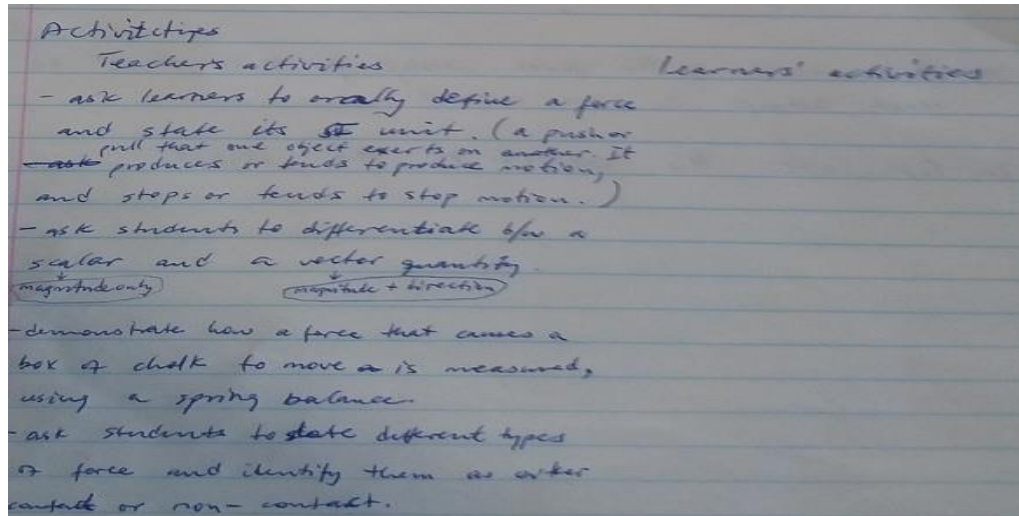 Activitctips
Teachers activities learners' activities
- ask learners to orally define a force
and state its SI unit. (a push or
pull that one object exerts on another. It
produces or tends to produce motion,
and stops or tends to stop motion.)
- ask students to differentiate b/w a
scalar and a vector quantity.
magnitude only magnitude + direction
- demonstrate how a force that causes a
box of chalk to move is measured,
using a spring balance.
- ask students to state different types
of force and identify them as either
contact or non-contact.